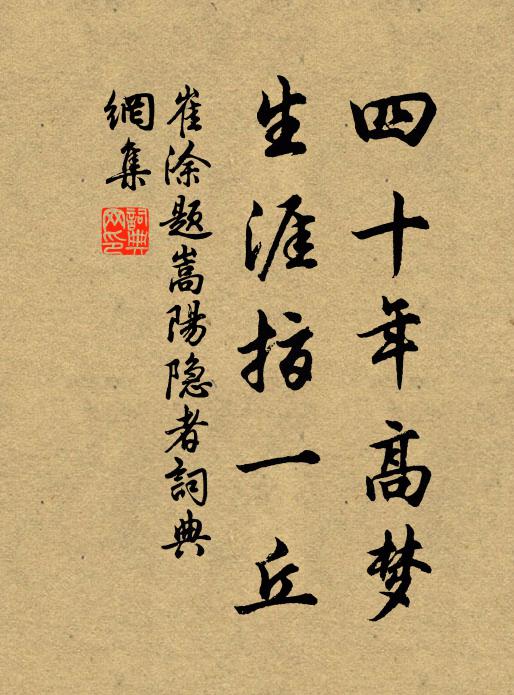 四十年高梦
生涯指一丘
崔涂题嵩陽隐者詞典
網集
詞典
网印